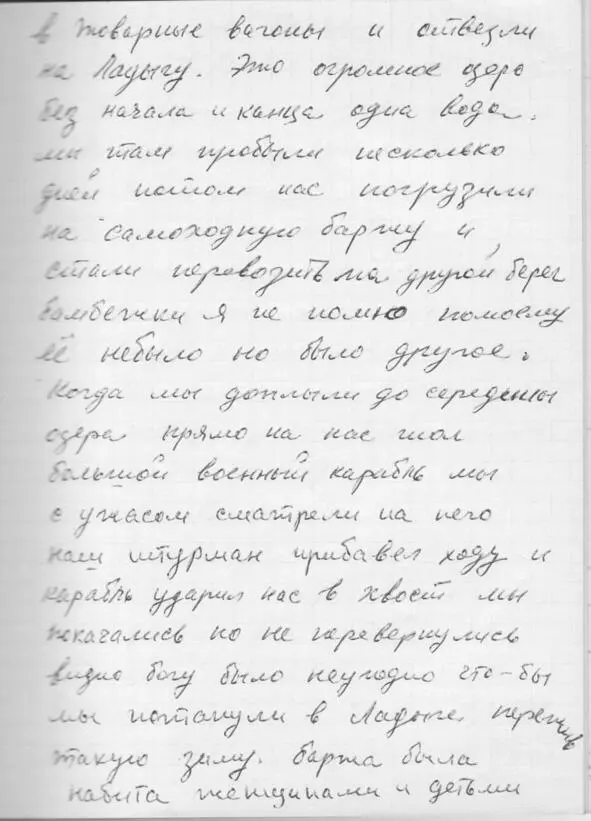 в товарные вагоны и отвезли
на Ладыгу. Это огромное озеро
без начала и канца одна вода.
мы там пробыли несколько
дней потом нас погрузили
на самоходную баржу и
стали перевозить на другой берег
бамбежки я не помню помоему
её небыло но было другое.
Когда мы доплыли до середины
озера прямо на нас шол
большой военный карабль мы
с ужасом сматрели на него
наш штурман прибавел ходу и
карабль ударил нас в хвост мы
покачались но не перевернулись
видно богу было неугодно что-бы
мы потанули в Ладоге. пережив
такую зиму. баржа была
набита женщинами и детьми